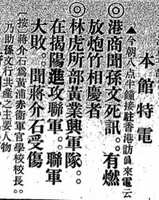 本館特電
▲今朝八点鐘接駐香港訪員來電云
◎港商聞孫文死訊。有燃
放炮竹相慶者
◎林虎所部黃業興軍隊。
在揭陽進攻聯軍。聯軍
大敗。聞蔣介石受傷
〔按〕蔣介石爲黃浦赤衛軍官學校校長。
乃助孫文行共產之主要人物